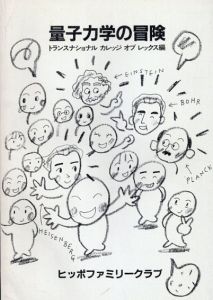 量子力学の冒険
トランスナショナル カレッジ オブ レックス編
←EINSTEIN
←BOHR
PLANCK
HEISENBERG
ヒッポファミリークラブ